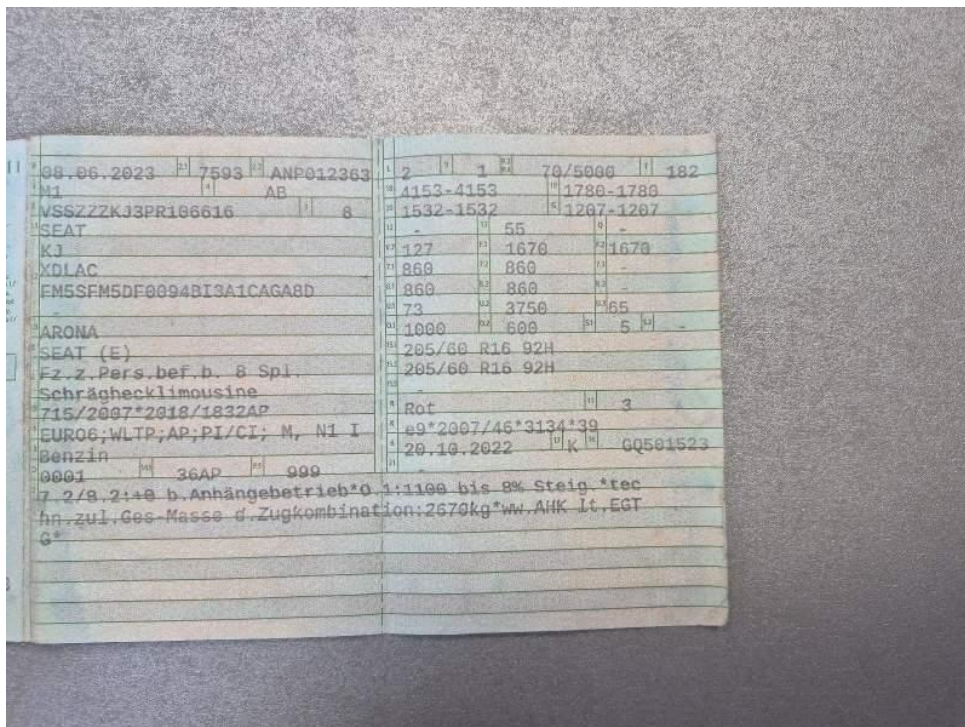 08.06.2023 7593 ANP012363
M1 AB
VSSZZZKJ3PR106616 8
SEAT
KJ
XDLAC
FM5SFM5DF0094BI3A1CAGA8D
-
ARONA
SEAT (E)
Fz.z.Pers.bef.b. 8 Spl.
Schräghecklimousine
715/2007*2018/1832AP
EURO6;WLTP;AP;PI/CI; M, N1 I
Benzin
0001 36AP 999
2 1 70/5000 182
4153-4153 1780-1780
1532-1532 1207-1207
- 55 -
127 1670 1670
860 860 -
860 860 -
73 3750 65
1000 600 5 -
205/60 R16 92H
205/60 R16 92H
-
Rot 3
e9*2007/46*3134*39
20.10.2022 K GQ501523
-
7.2/8.2:+0 b.Anhängebetrieb*O.1:1100 bis 8% Steig.*tec
hn.zul.Ges-Masse d.Zugkombination:2670kg*ww.AHK lt.EGT
G*